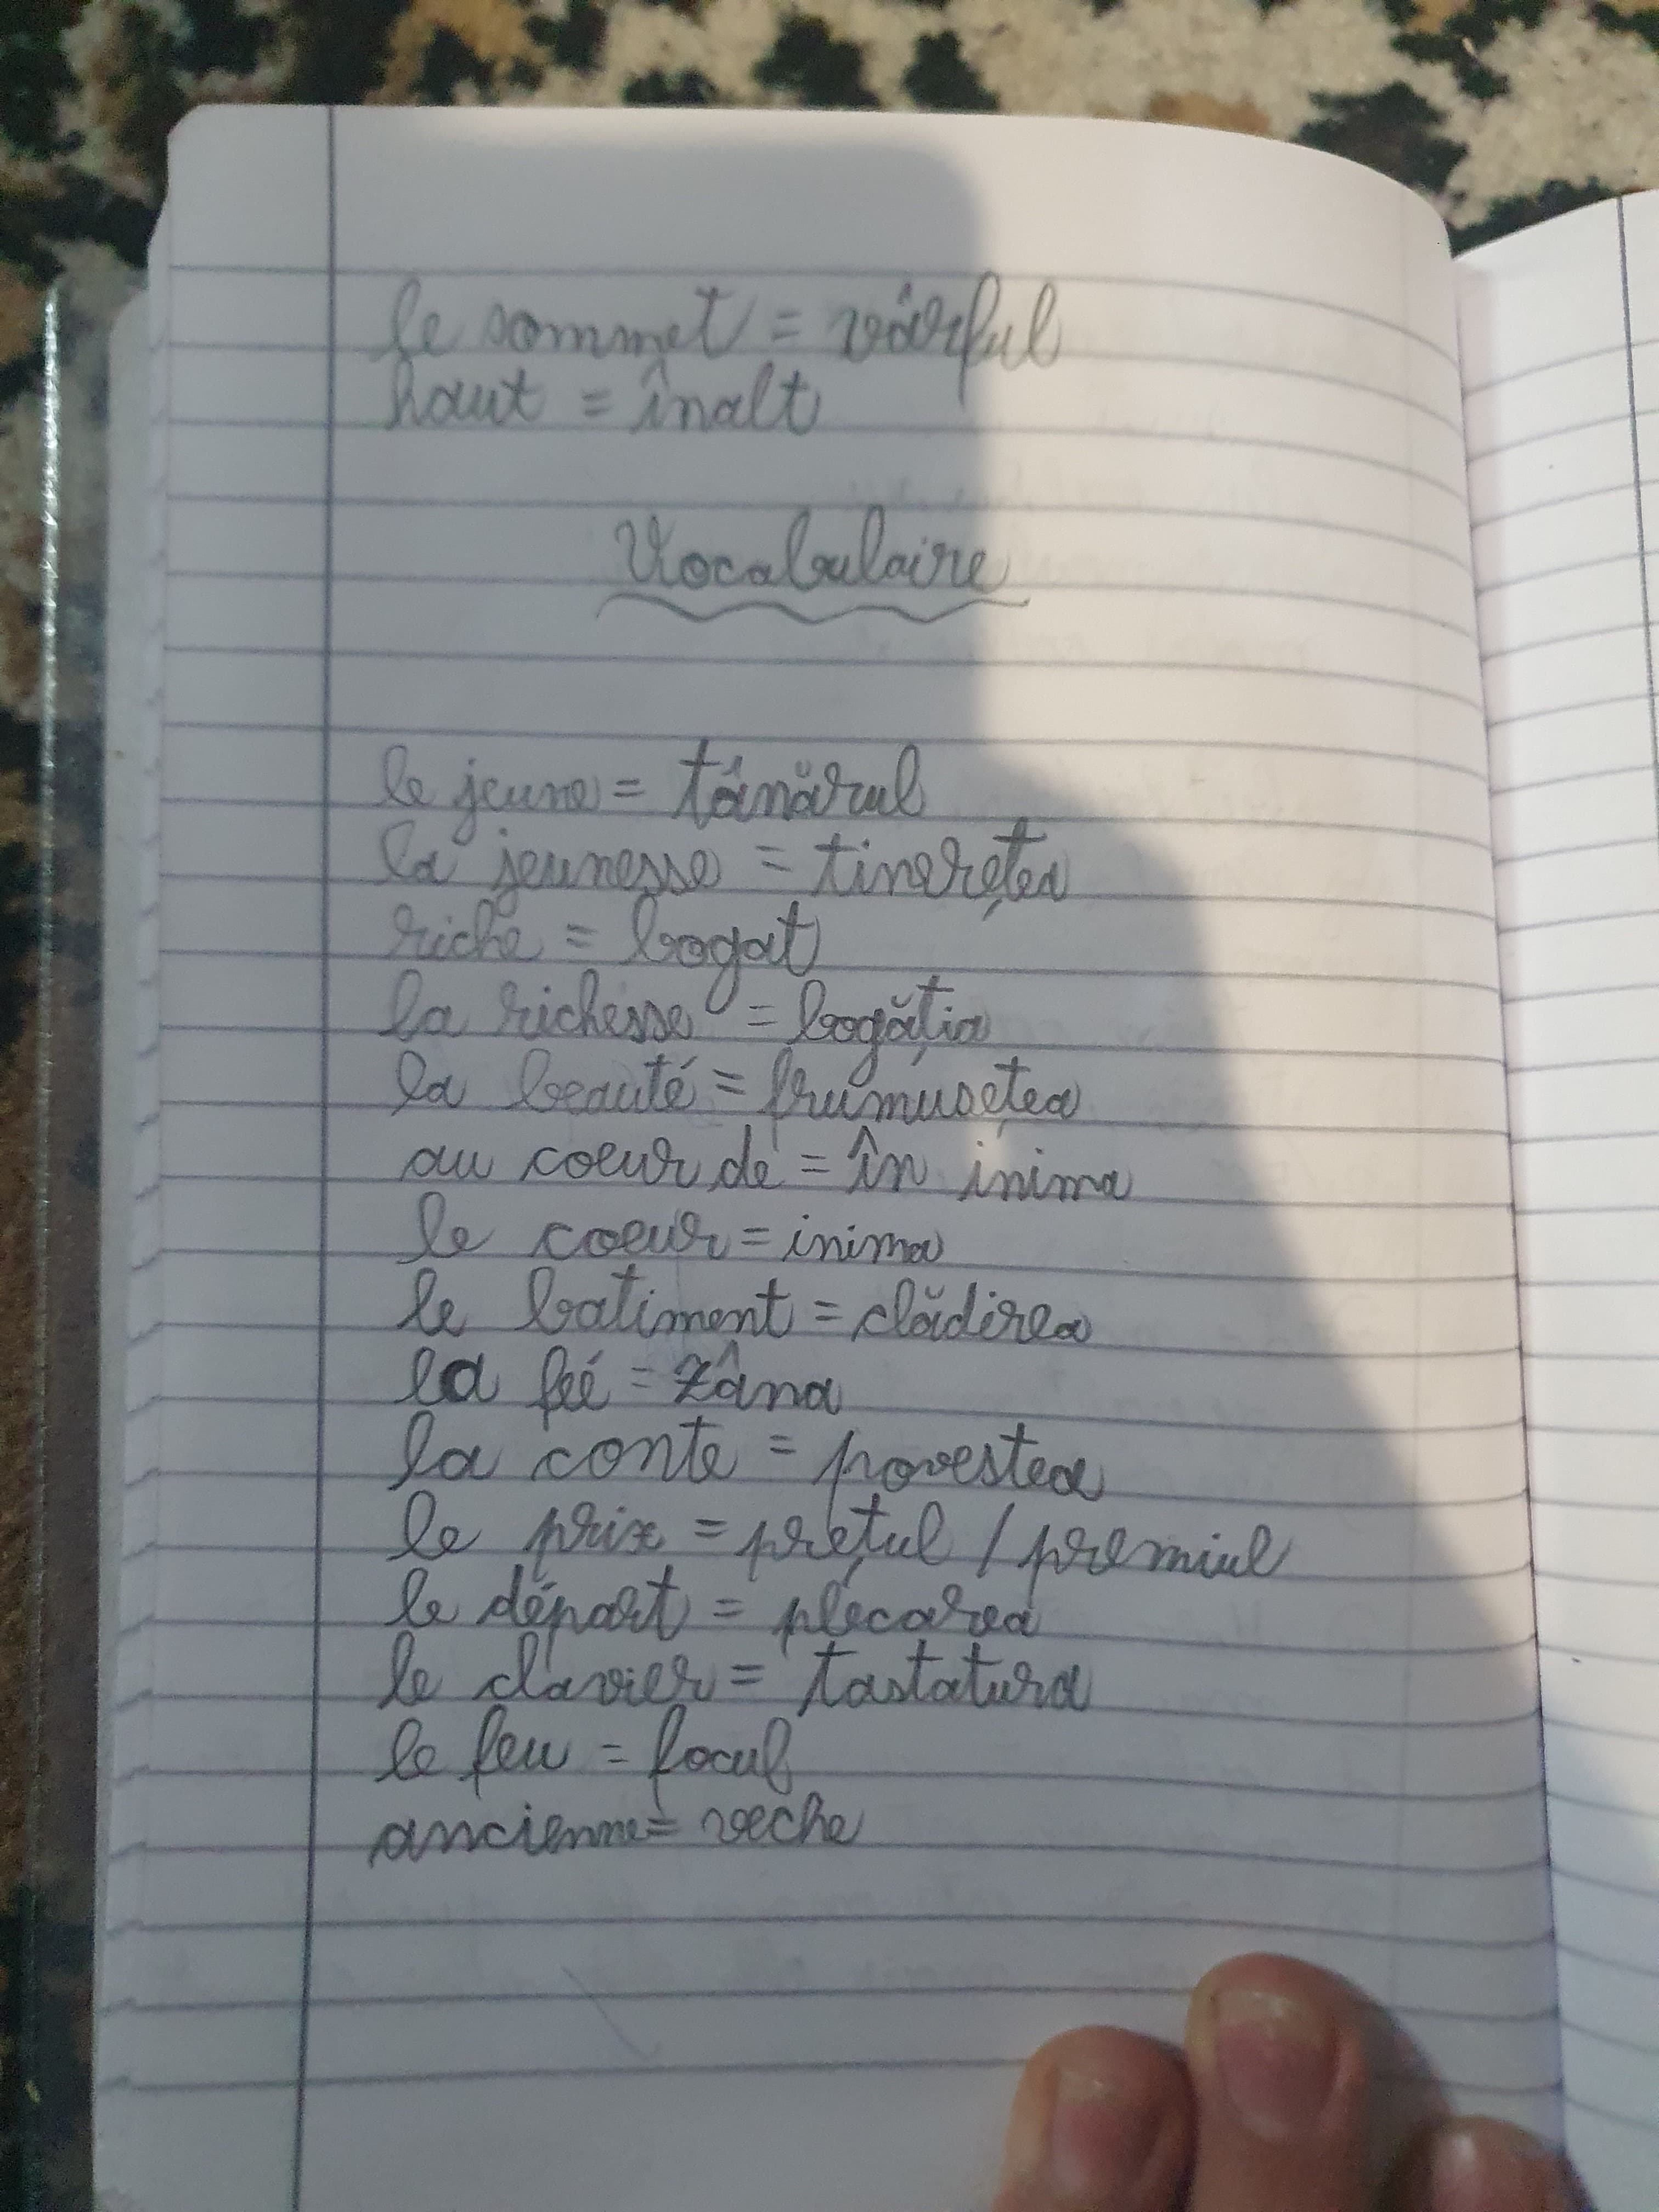 le sommet = vârful
haut = înalt
Vocabulaire
le jeune = tânărul
la jeunesse = tinerețea
riche = bogat
la richesse = bogăția
la beauté = frumusețea
au coeur de = în inima
le coeur = inima
le batiment = clădirea
la feé = zâna
la conte = povestea
le prix = prețul / premiul
le départ = plecarea
le clavier = tastatura
le feu = focul
ancienne = veche